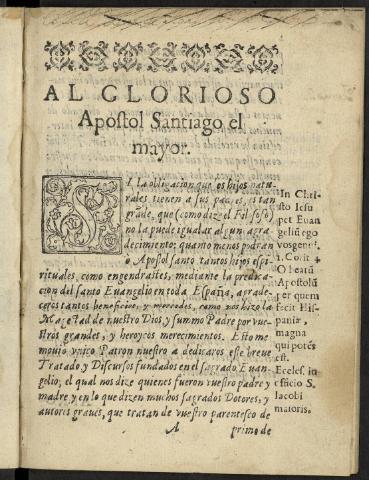 AL GLORIOSO
Apostol Santiago el
mayor.
SI la obligacion que os hijos natu-
rales tienen a sus padres, es tan
grāde, que (como dize el Filosofo)
no la puede igualar algun agra-
decimiento: quanto menos podran
o Apostol santo tantos hijos espi-
rituales, como engendrastes, mediante la predica-
cion del santo Euangelio en toda España, agrade-
ceros tantos beneficios, y mercedes, como nos hizo la
Magestad de nuestro Dios, y summo Padre por vue-
stros grandes, y heroycos merecimientos. Esto me
mouio vnico Patron nuestro a dedicaros, este breue
Tratado y Discursos fundados en el sagrado Euan-
gelio; el qual nos dize quienes fueron vuestro padre y
madre y en lo que dizen muchos sagrados Dotores, y
autores graues, que tratan de vuestro parentesco de
A
primo de
In Chri-
sto Iesu
per Euan
geliū ego
vos genui
1. Cor. 4
O beatū
Apostolū
per quem
fecit His-
paniæ,
magna
qui potēs
est.
Eccles. in
officio S.
Iacobi
maioris.